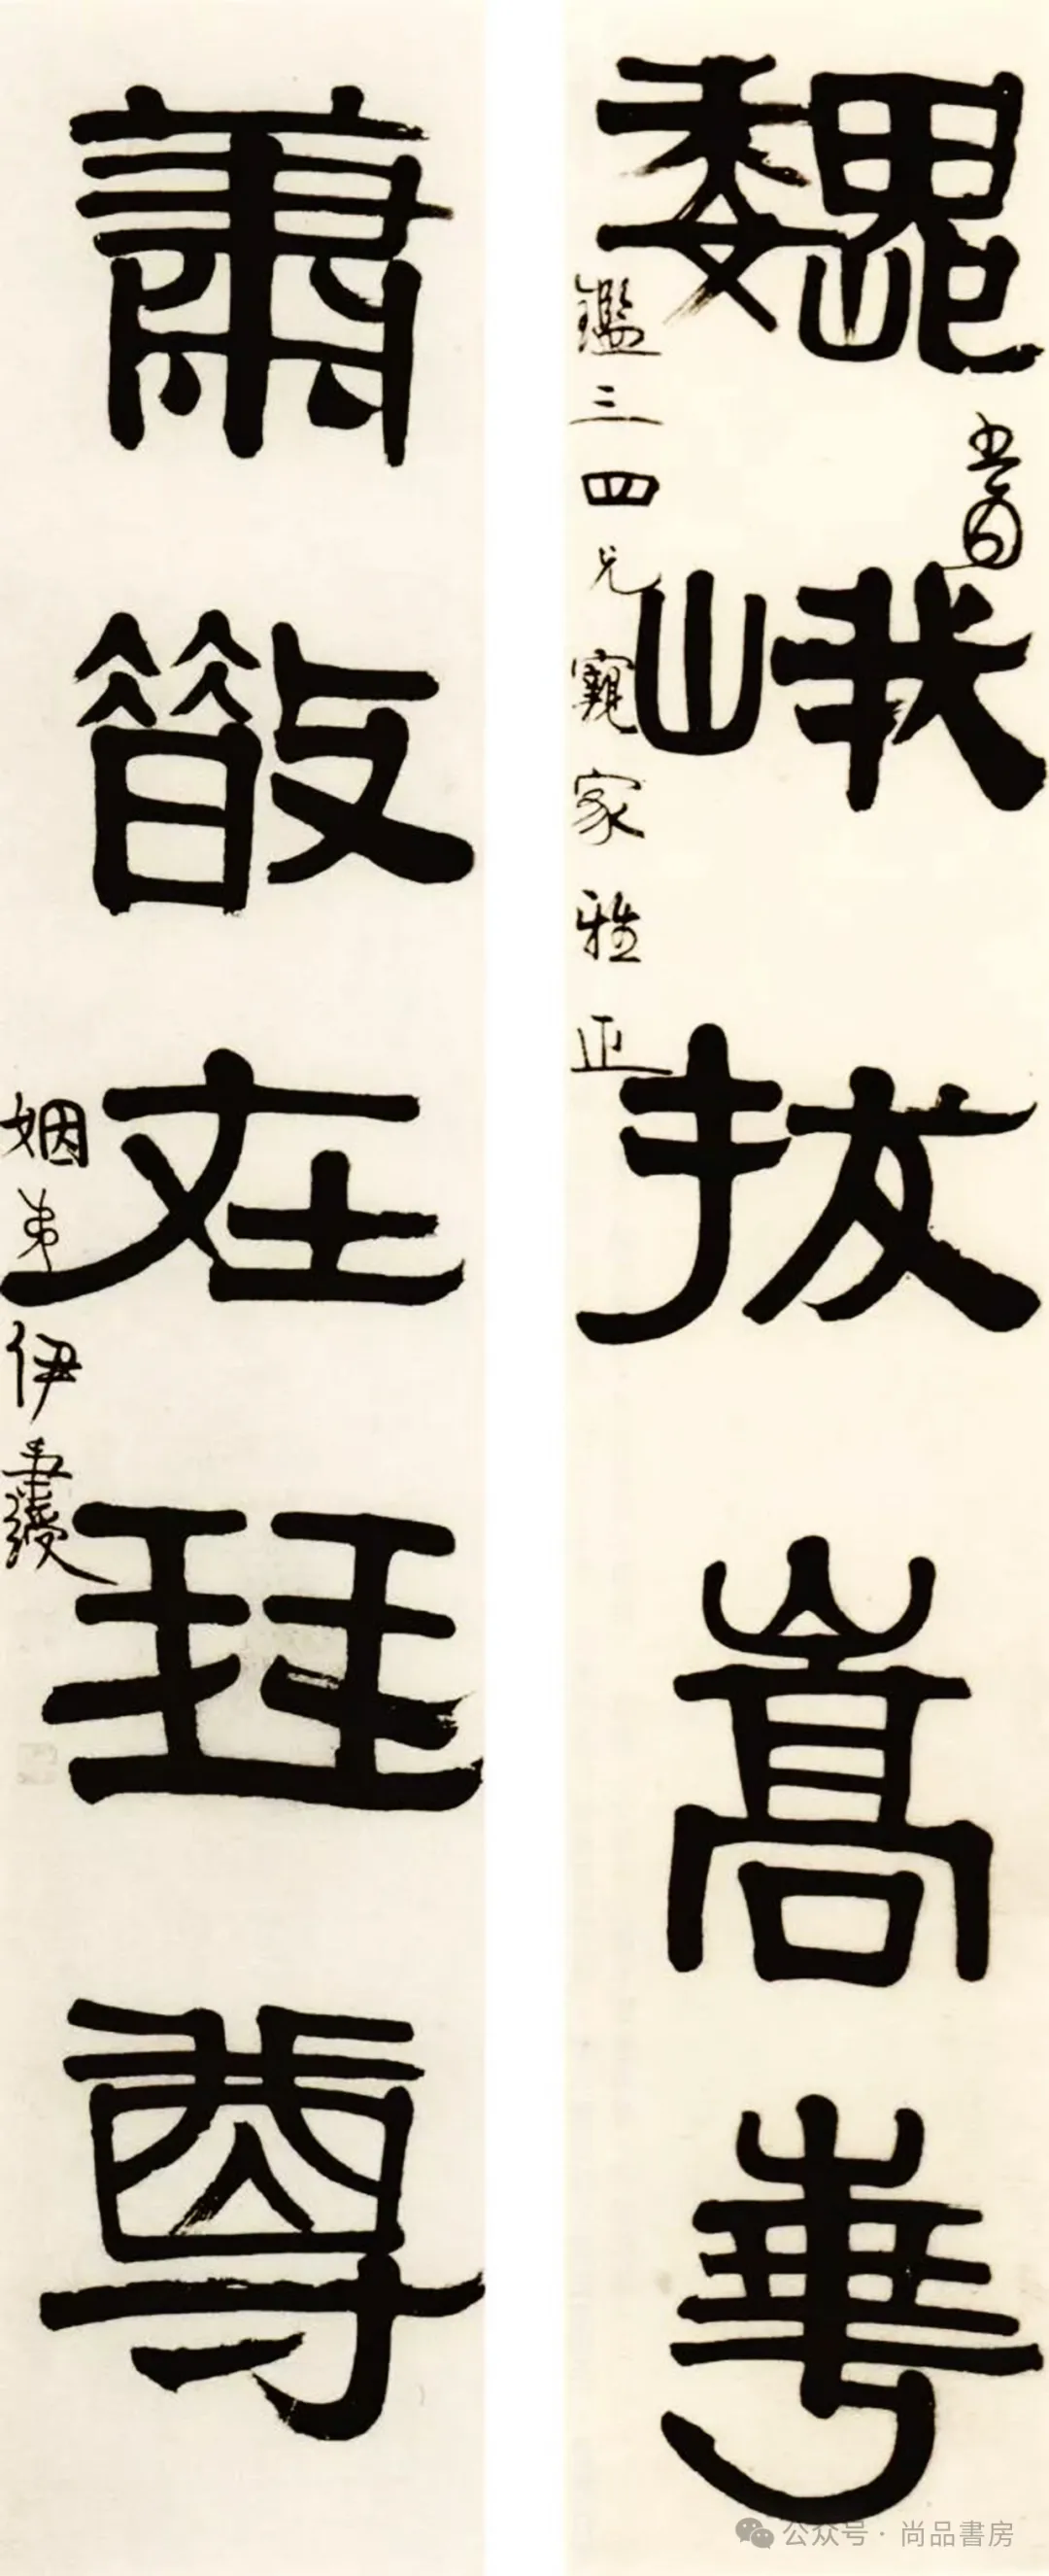 巍峨拔嵩華
書為
鑑三四兄寴家雅正
蕭散在琴尊
姻弟伊秉綬
公众号 · 尚品書房